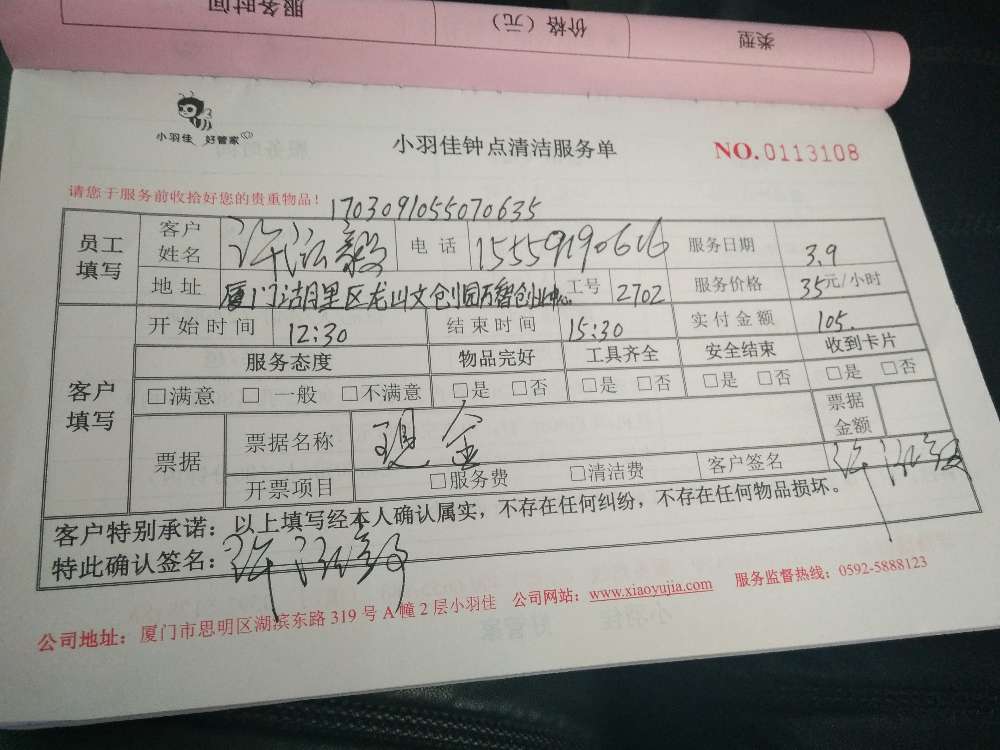 服务时间
价格（元）
类型
小羽佳 好管家
小羽佳钟点清洁服务单
NO.0113108
请您于服务前收拾好您的贵重物品！
1703091055070635
员工填写 客户姓名 许 电话 15559190616 服务日期 3.9
地址 厦门湖里区龙山文创园万智创业中心 工号 2702 服务价格 35元/小时
客户填写 开始时间 12:30 结束时间 15:30 实付金额 105.
服务态度 物品完好 工具齐全 安全结束 收到卡片
□满意 □一般 □不满意 □是 □否 □是 □否 □是 □否 □是 □否
票据 票据名称 现金 票据金额
开票项目 □服务费 □清洁费 客户签名 许
客户特别承诺：以上填写经本人确认属实，不存在任何纠纷，不存在任何物品损坏。
特此确认签名：许
公司地址：厦门市思明区湖滨东路319号A幢2层小羽佳 公司网站：www.xiaoyujia.com 服务监督热线：0592-5888123